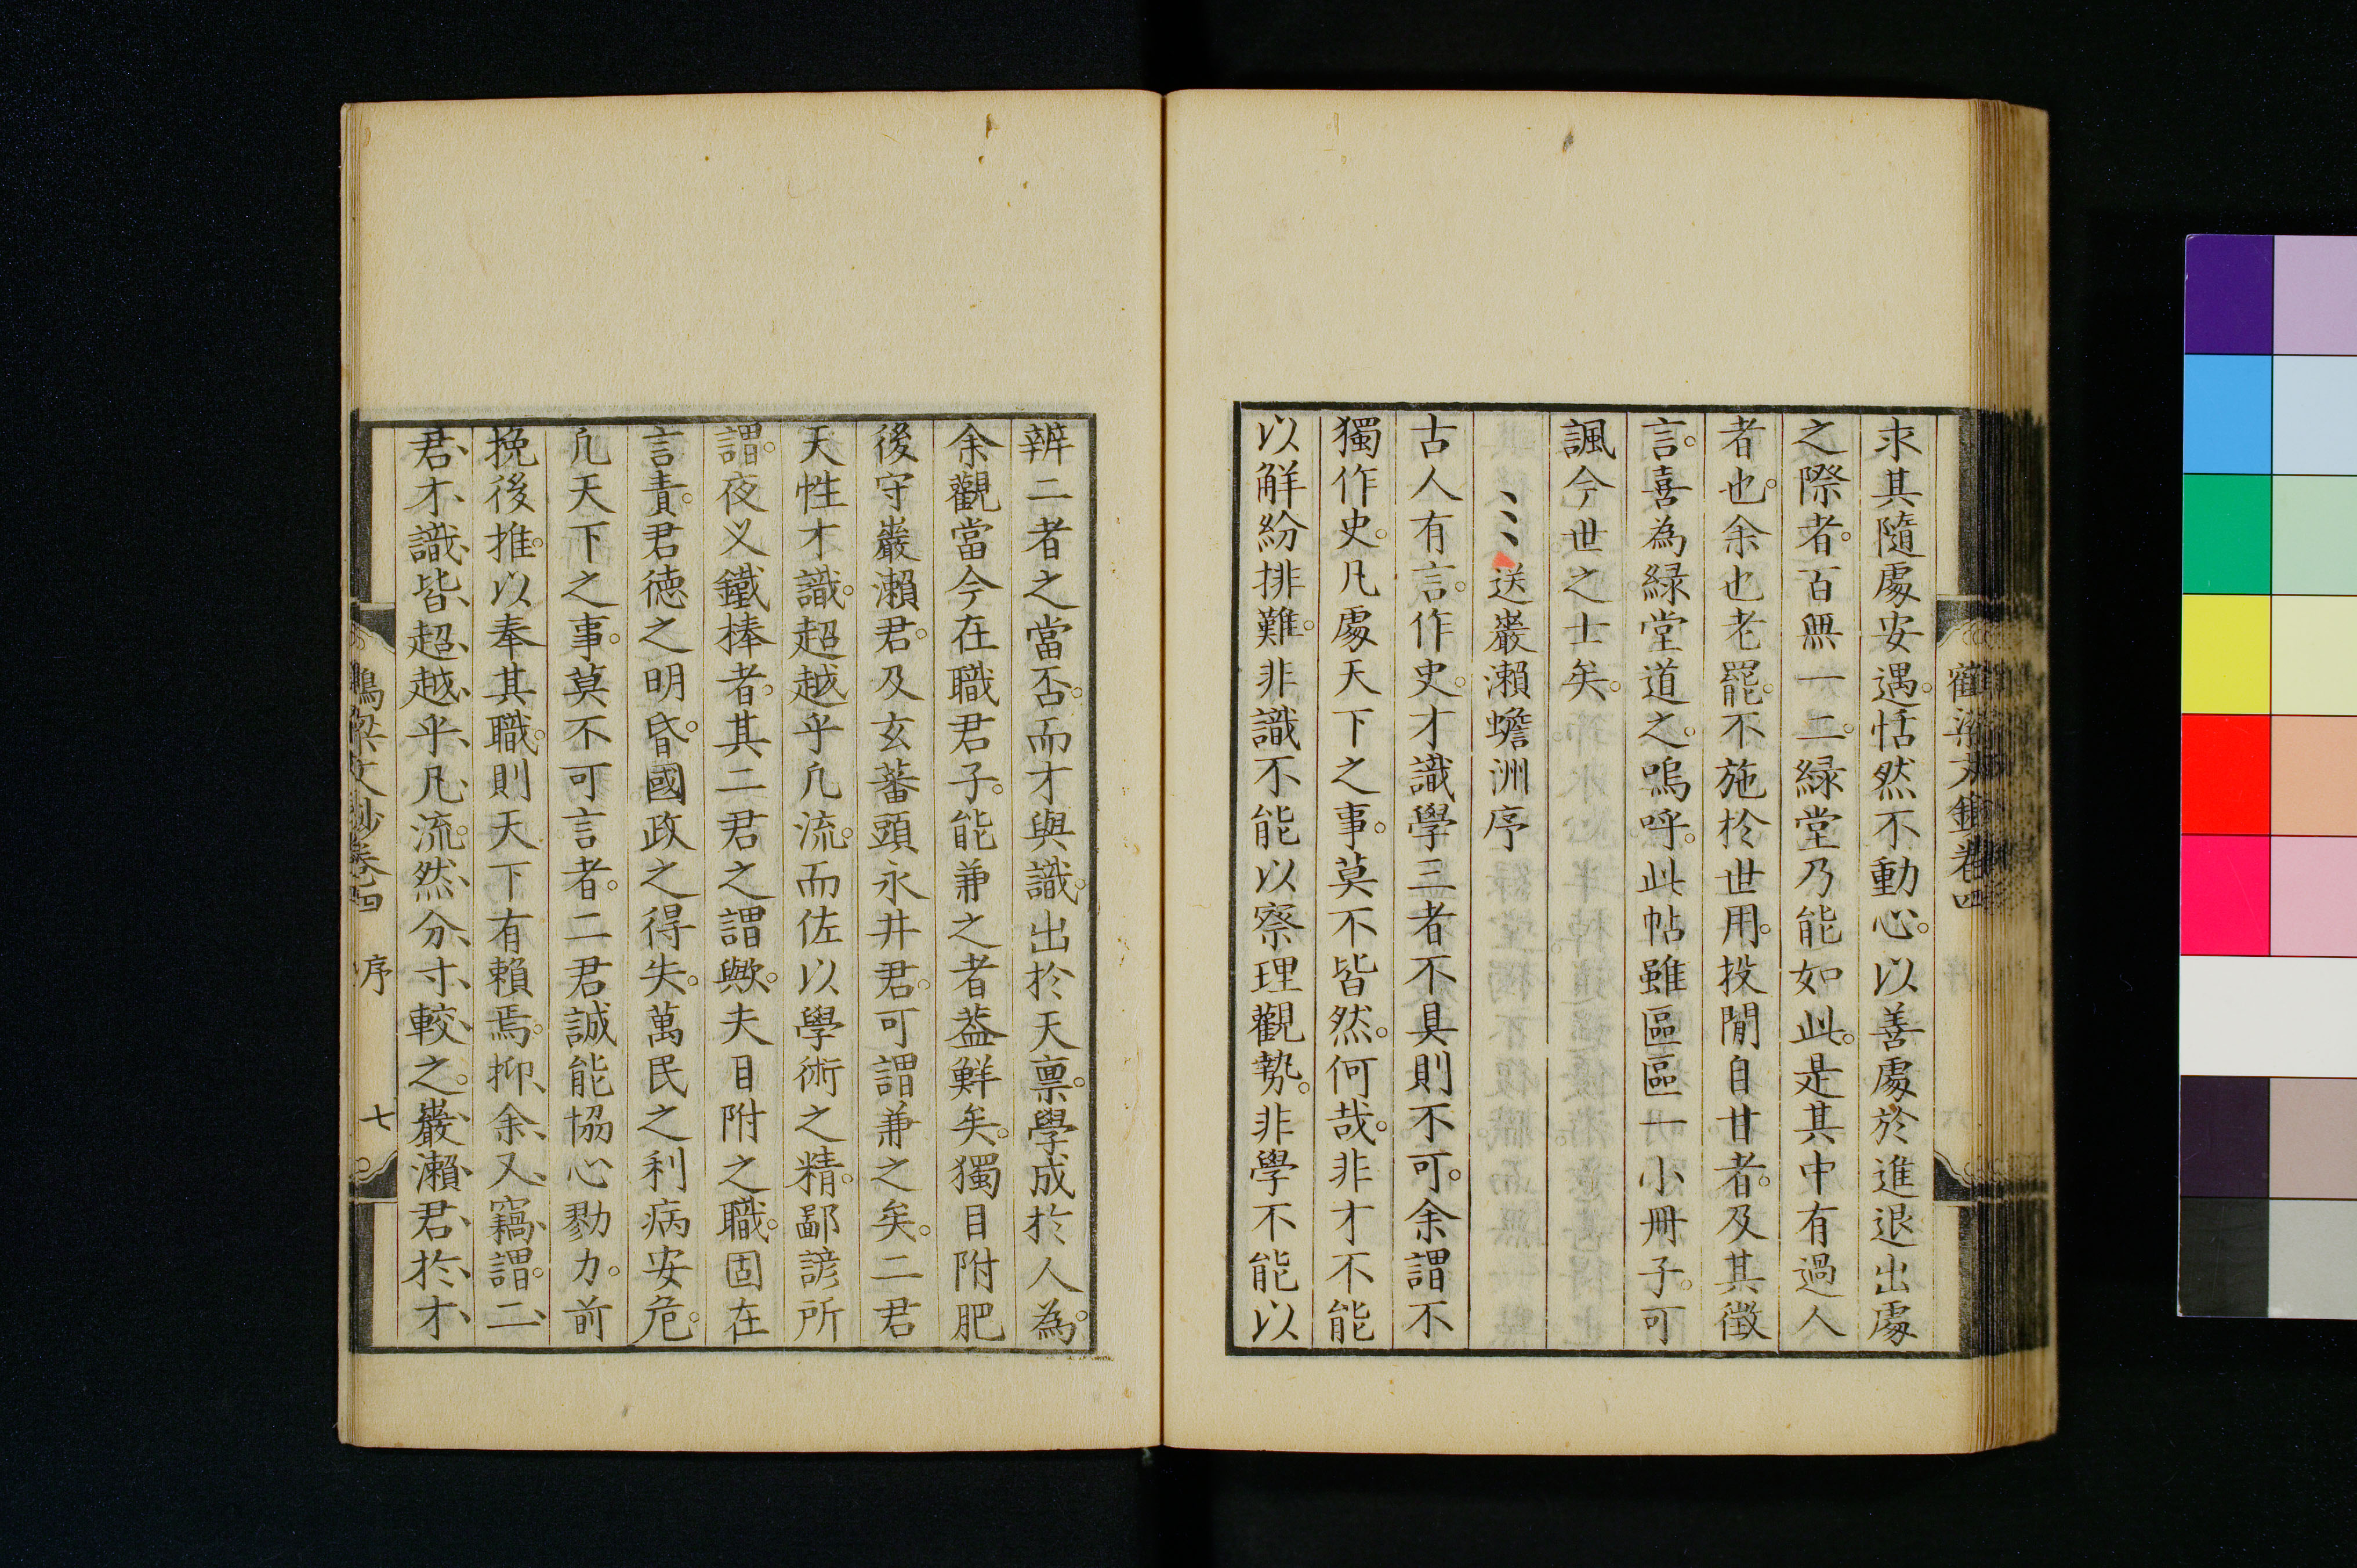 求其隨處安遇。恬然不動心。以善處於進退出處
之際者。百無一二。緑堂乃能如此。是其中有過人
者也。余也老罷。不施於世用。投閒自甘者。及其徵
言。喜為緑堂道之。嗚呼。此帖雖區區一小冊子。可
諷今世之士矣。
送巖瀨蟾洲序
古人有言。作史。才識學三者不具則不可。余謂不
獨作史。凡處天下之事。莫不皆然。何哉。非才不能
以解紛排難。非識不能以察理觀勢。非學不能以
辨二者之當否。而才與識。出於天稟。學成於人為。
余觀當今在職君子。能兼之者蓋鮮矣。獨目附肥
後守巖瀨君。及玄蕃頭永井君。可謂兼之矣。二君
天性才識。超越乎凡流。而佐以學術之精。鄙諺所
謂。夜义鐵棒者。其二君之謂歟。夫目附之職。固在
言責。君徳之明昏。國政之得失。萬民之利病安危。
凡天下之事。莫不可言者。二君誠能協心勠力。前
挽後推。以奉其職。則天下有賴焉。抑余又竊謂。二
君才識皆超越乎凡流。然分寸較之。巖瀨君於才
鴨梁文鈔卷四 序 七